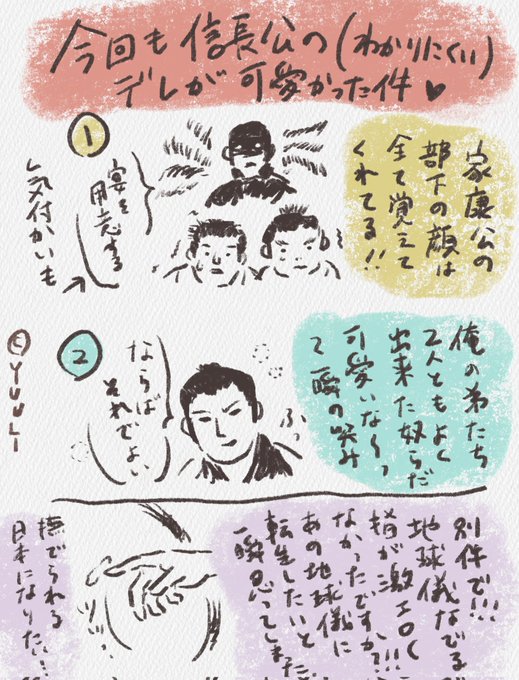 今回も信長公の(わかりにくい)
デレが可愛かった件♥
1
家康公の
部下の顔は
全て覚えて
くれてる!!
宴を
用意する
気付かいも
2
俺の弟たち
2人ともよく
出来た奴らだ
可愛いな〜っ
て一瞬の笑み
ふっ
ならば
それでよい
©YUULI
別件で!!!
地球儀なでる
指が激エロく
なかったですか?!!
あの地球儀に
転生したいと
一瞬思ってしまった
撫でられる
日本になりたい…